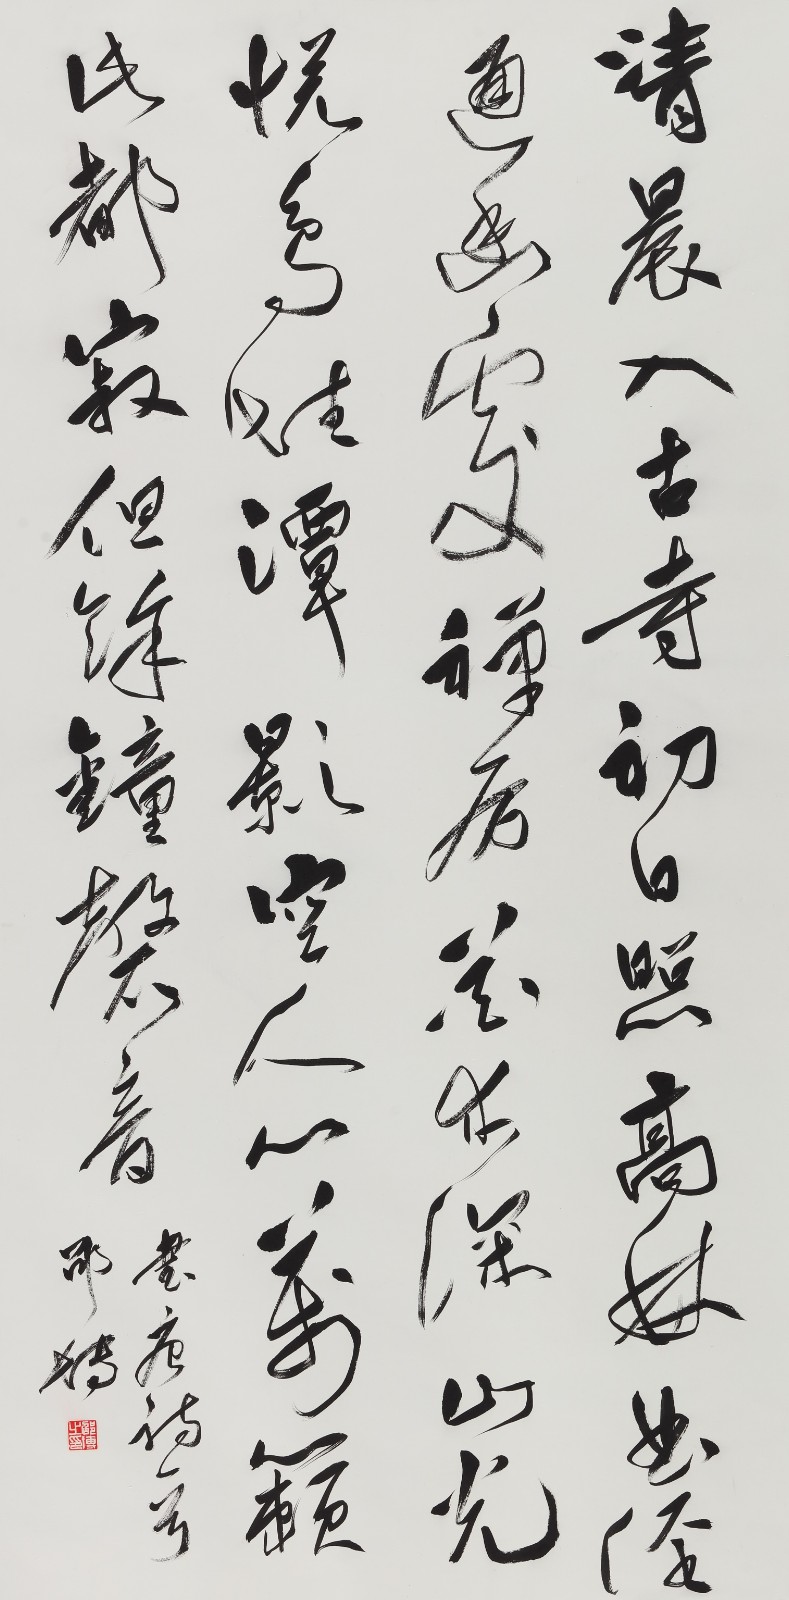 清晨入古寺初日照高林曲徑
通幽處禪房花木深山光
悅鳥性潭影空人心萬籟
此都寂但餘鐘磬音
書唐詩一首
邵